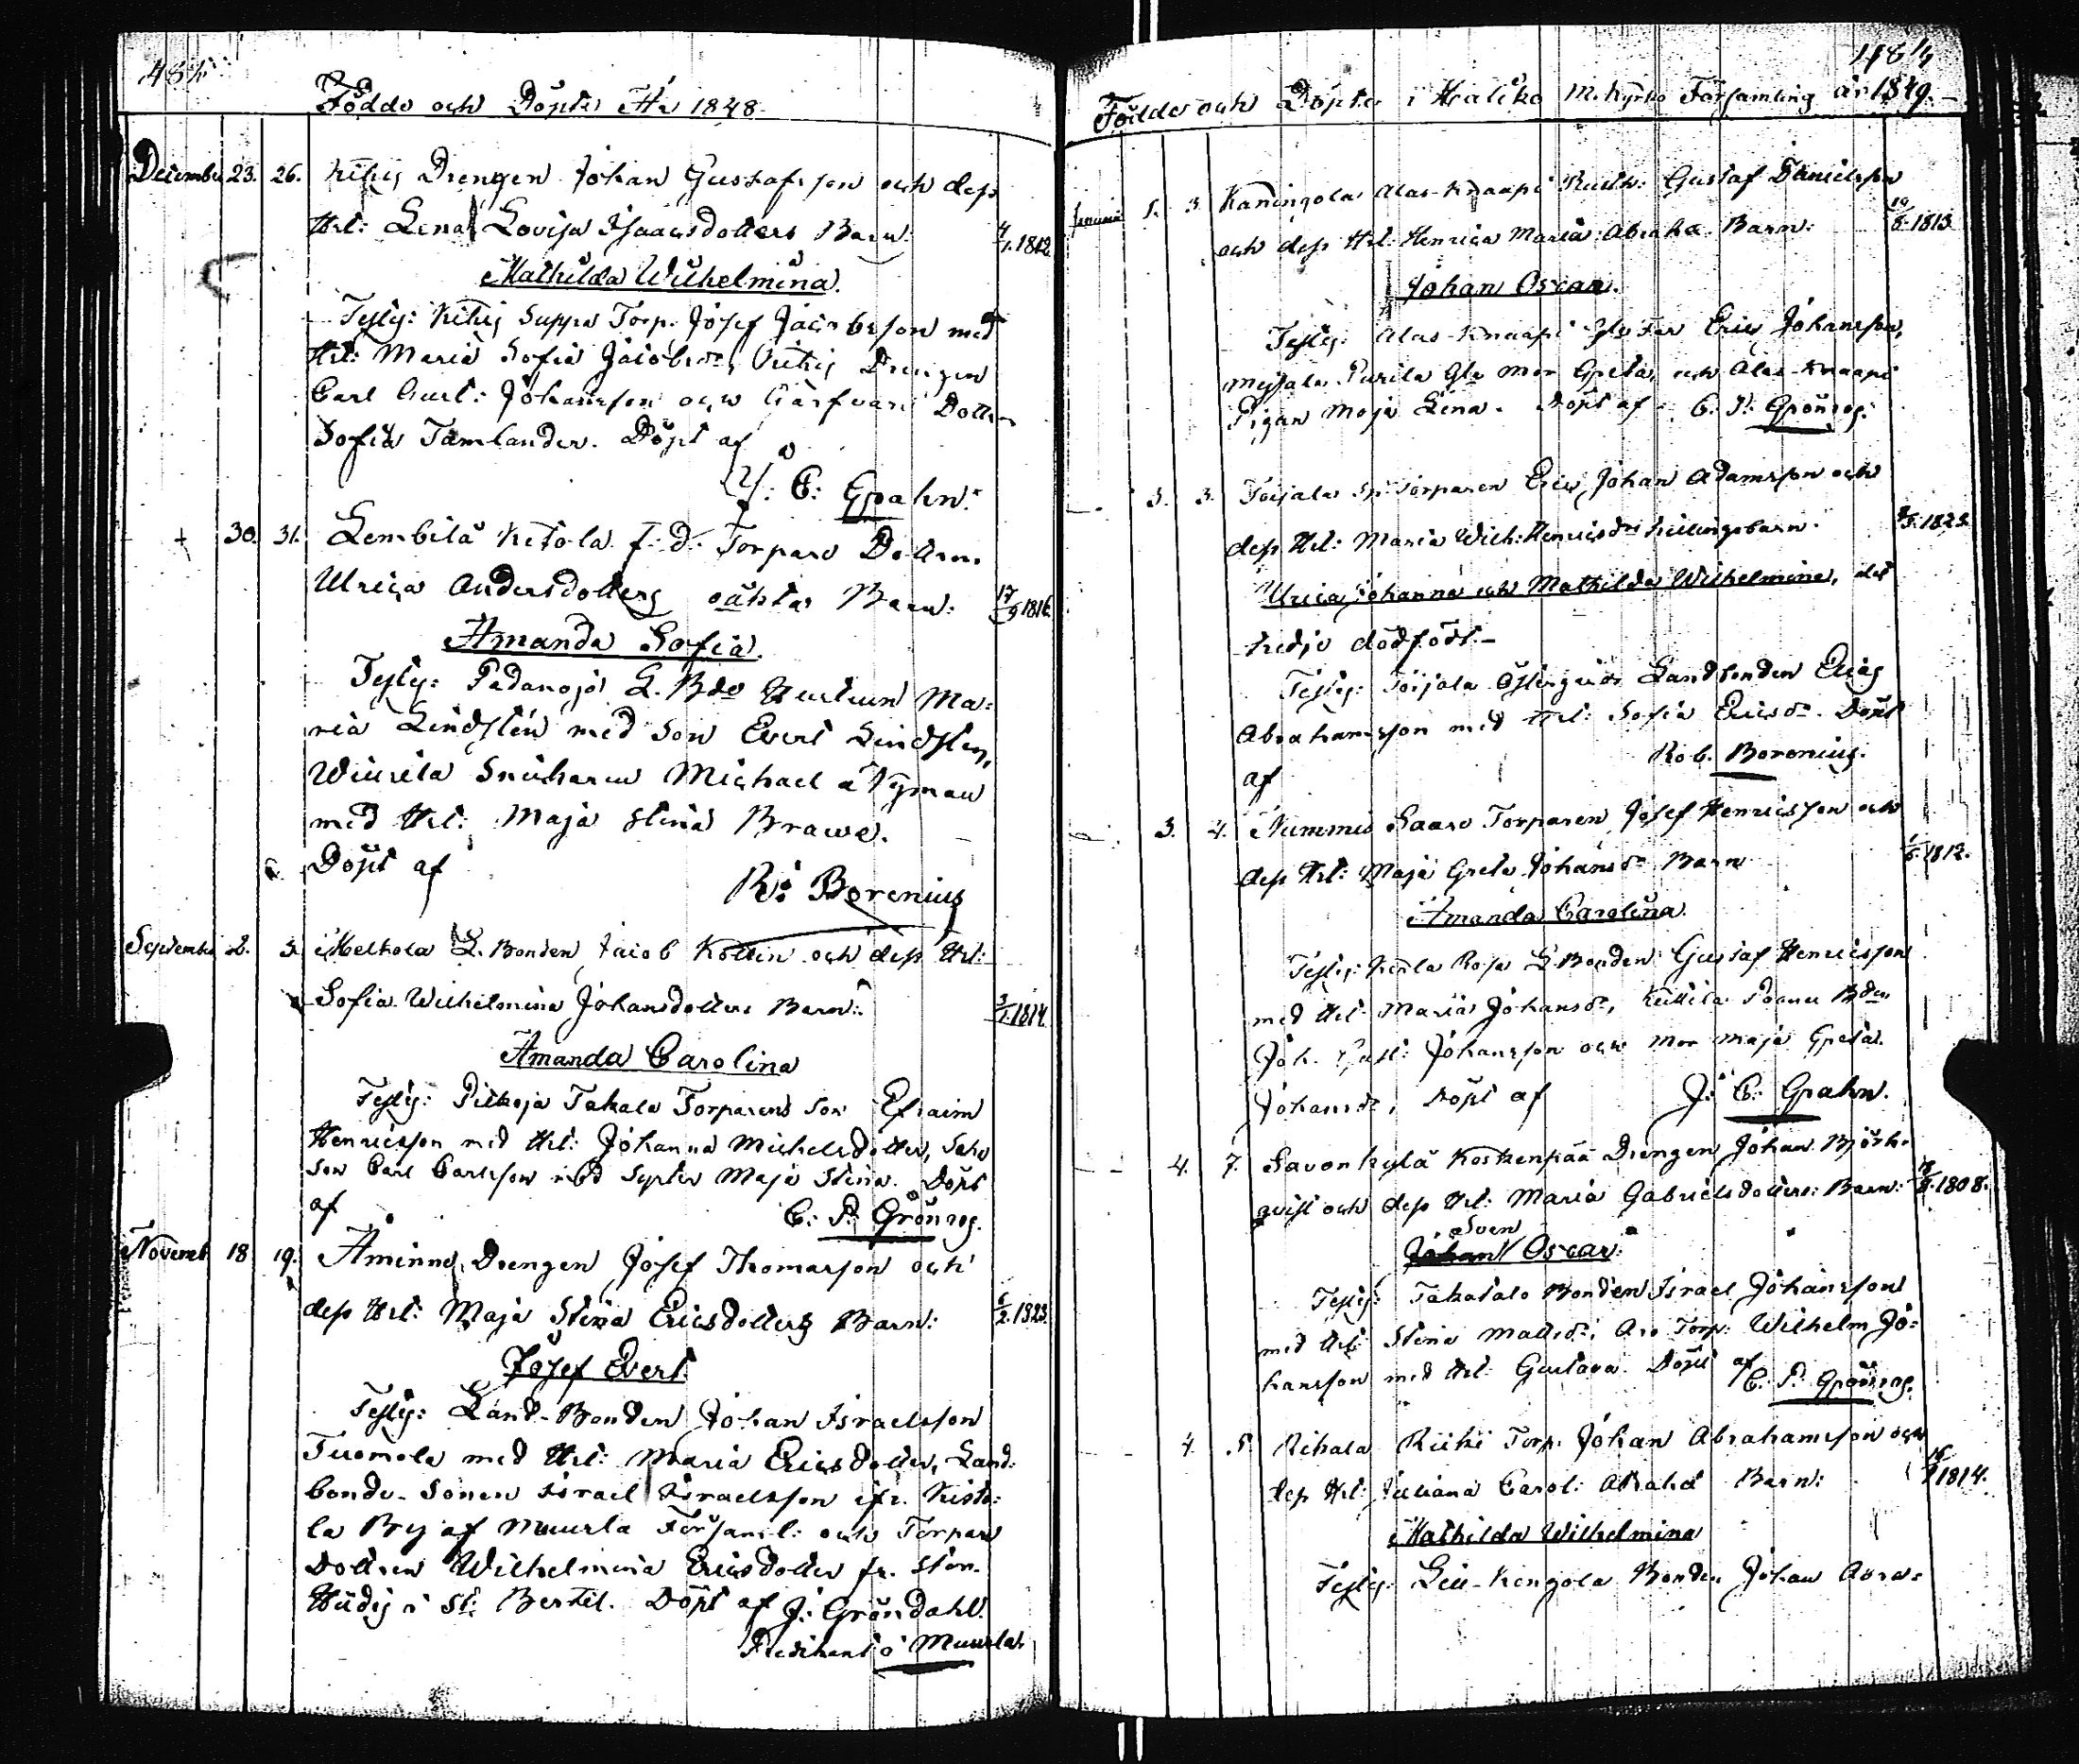 Födde och Döpte År 1848.
December 23. 26. Kihis Drengen Johan Gustafsson och dess
Hst: Lena Lovisa Isaacsdotters Barn: 4/1. 1812.
Mathilda Wilhelmina.
Testes: Kihis Suppa Torp. Josef Jacobsson med
Hst: Maria Sofia Jacobsdr, Drengen
Carl Gust: Johansson och Dottren
Sofia Tamlander. Döpt af
J: C: Grahn.
+ 30. 31. Lembilä Ketola f. d. Torpare Dottren
Ulrica Andersdotters oächta Barn: 17/9 1816.
Amanda Sofia.
Testes: Padanoja L. Bde Enkan Ma-
ria Lindstén med Son Evert Lindsten,
Wiurila Snickaren Michael Nyman
med Hst: Maja Stina Brawe.
Döpt af
R: Borenius
September 2. 3. Melkola L. Bonden Jacob Kollin och dess Hst:
Sofia Wilhelmina Johansdotters Barn: 3/1. 1814.
Amanda Carolina
Testes: Pitkoja Takala Torparens Son Efraim
Henricsson med Hst: Johanna Michelsdotter,
Son Carl Carlsson med Syster Maja Stina. Döpt
af C: P: Grönroos.
Novemb 18 19. Åminne Drengen Josef Thomasson och
dess Hst: Maja Stina Ericsdotters Barn: 6/2. 1823.
Josef Evert.
Testes: Land-Bonden Johan Israelsson
Tuomola med Hst: Maria Ericsdotter, Land-
bonde-Sonen Israel Israelsson ifr. Kisto-
la By af Muurla Församl: och Torpare
Dottren Wilhelmina Ericsdotter fr. Stor-
Hiidis i St: Bertil. Döpt af J: Gröndahl.
Predikant i Muurla.
Födde och Döpte i Haliko M. Kyrko Församling år 1849.
Januarii 1. 3. Kaningola Alas-Knaapi Rusth: Gustaf Danielsson
och dess Hst: Henrica Maria Abrahd. Barn: 10/8. 1813
Johan Oscar.
Testes: Alas-Knaapi Gl. Far Eric Johansson,
Purila Gla Mor Greta, och Alas-Knaapi
Pigan Maja Lena. Döpt af C. P. Grönroos.
3. 3. Toijala Torparen Eric Johan Adamsson och
dess Hst: Maria Wilh: Henricsdrs Trillingsbarn. 1823.
Ulrica Johanna och Mathilda Wilhelmina, det
tredje dödfödt.
Testes: Toijala Östergård Landbonden Elias
Abrahamsson med Hst: Sofia Ericsdr. Döpt
af Rob. Borenius.
3. 4. Nummis Saaro Torparen Josef Henricsson och
dess Hst: Maja Greta Johansdr Barn 1/6. 1812.
Amanda Carolina.
Testes: L. Bonden Gustaf Henricsson
med Hst: Maria Johansdr, Bden
Joh. Gust: Johansson och Mor Maja Greta
Johansdr, Döpt af J: C: Grahn.
4. 7. Savonkylä Koskenpää Drengen Johan Björk-
qvist och dess Hst: Maria Gabrielsdotters: Barn: 1808.
Sven
Johan Oscar.
Testes: Takatalo Bonden Israel Johansson
med Hst: Stina Mattsdr, Aro Torp: Wilhelm Jo-
hansson med Hst: Gustava. Döpt af C: P: Grönroos.
4. 5. Rikala Riihi Torp: Johan Abrahamsson och
dess Hst: Juliana Carol: Abrahd Barn: 1814.
Mathilda Wilhelmina
Testes: Bonden Johan Abra-